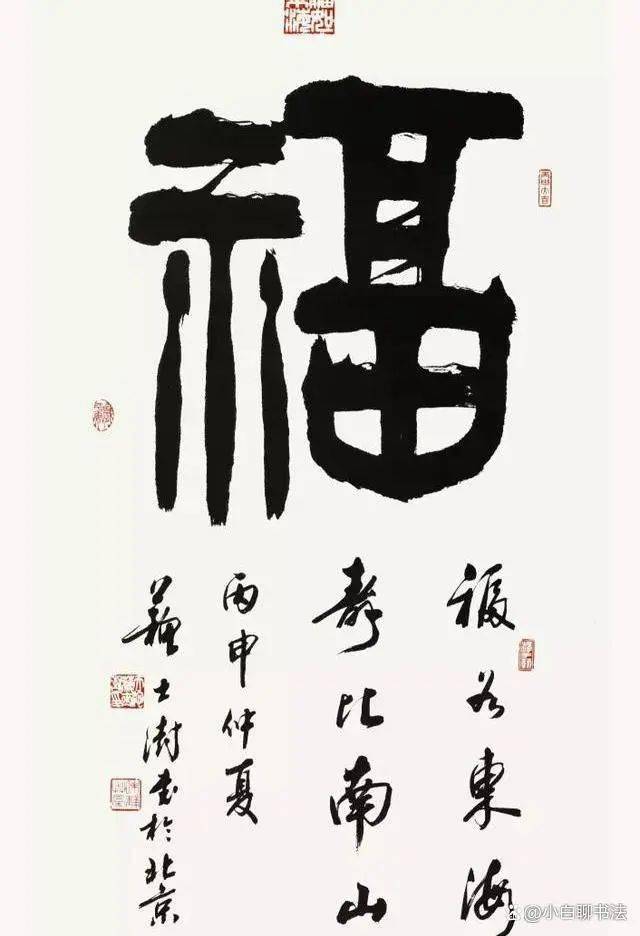 福
福如東海
寿比南山
丙申仲夏
蘇士澍書於北京
@小白聊书法